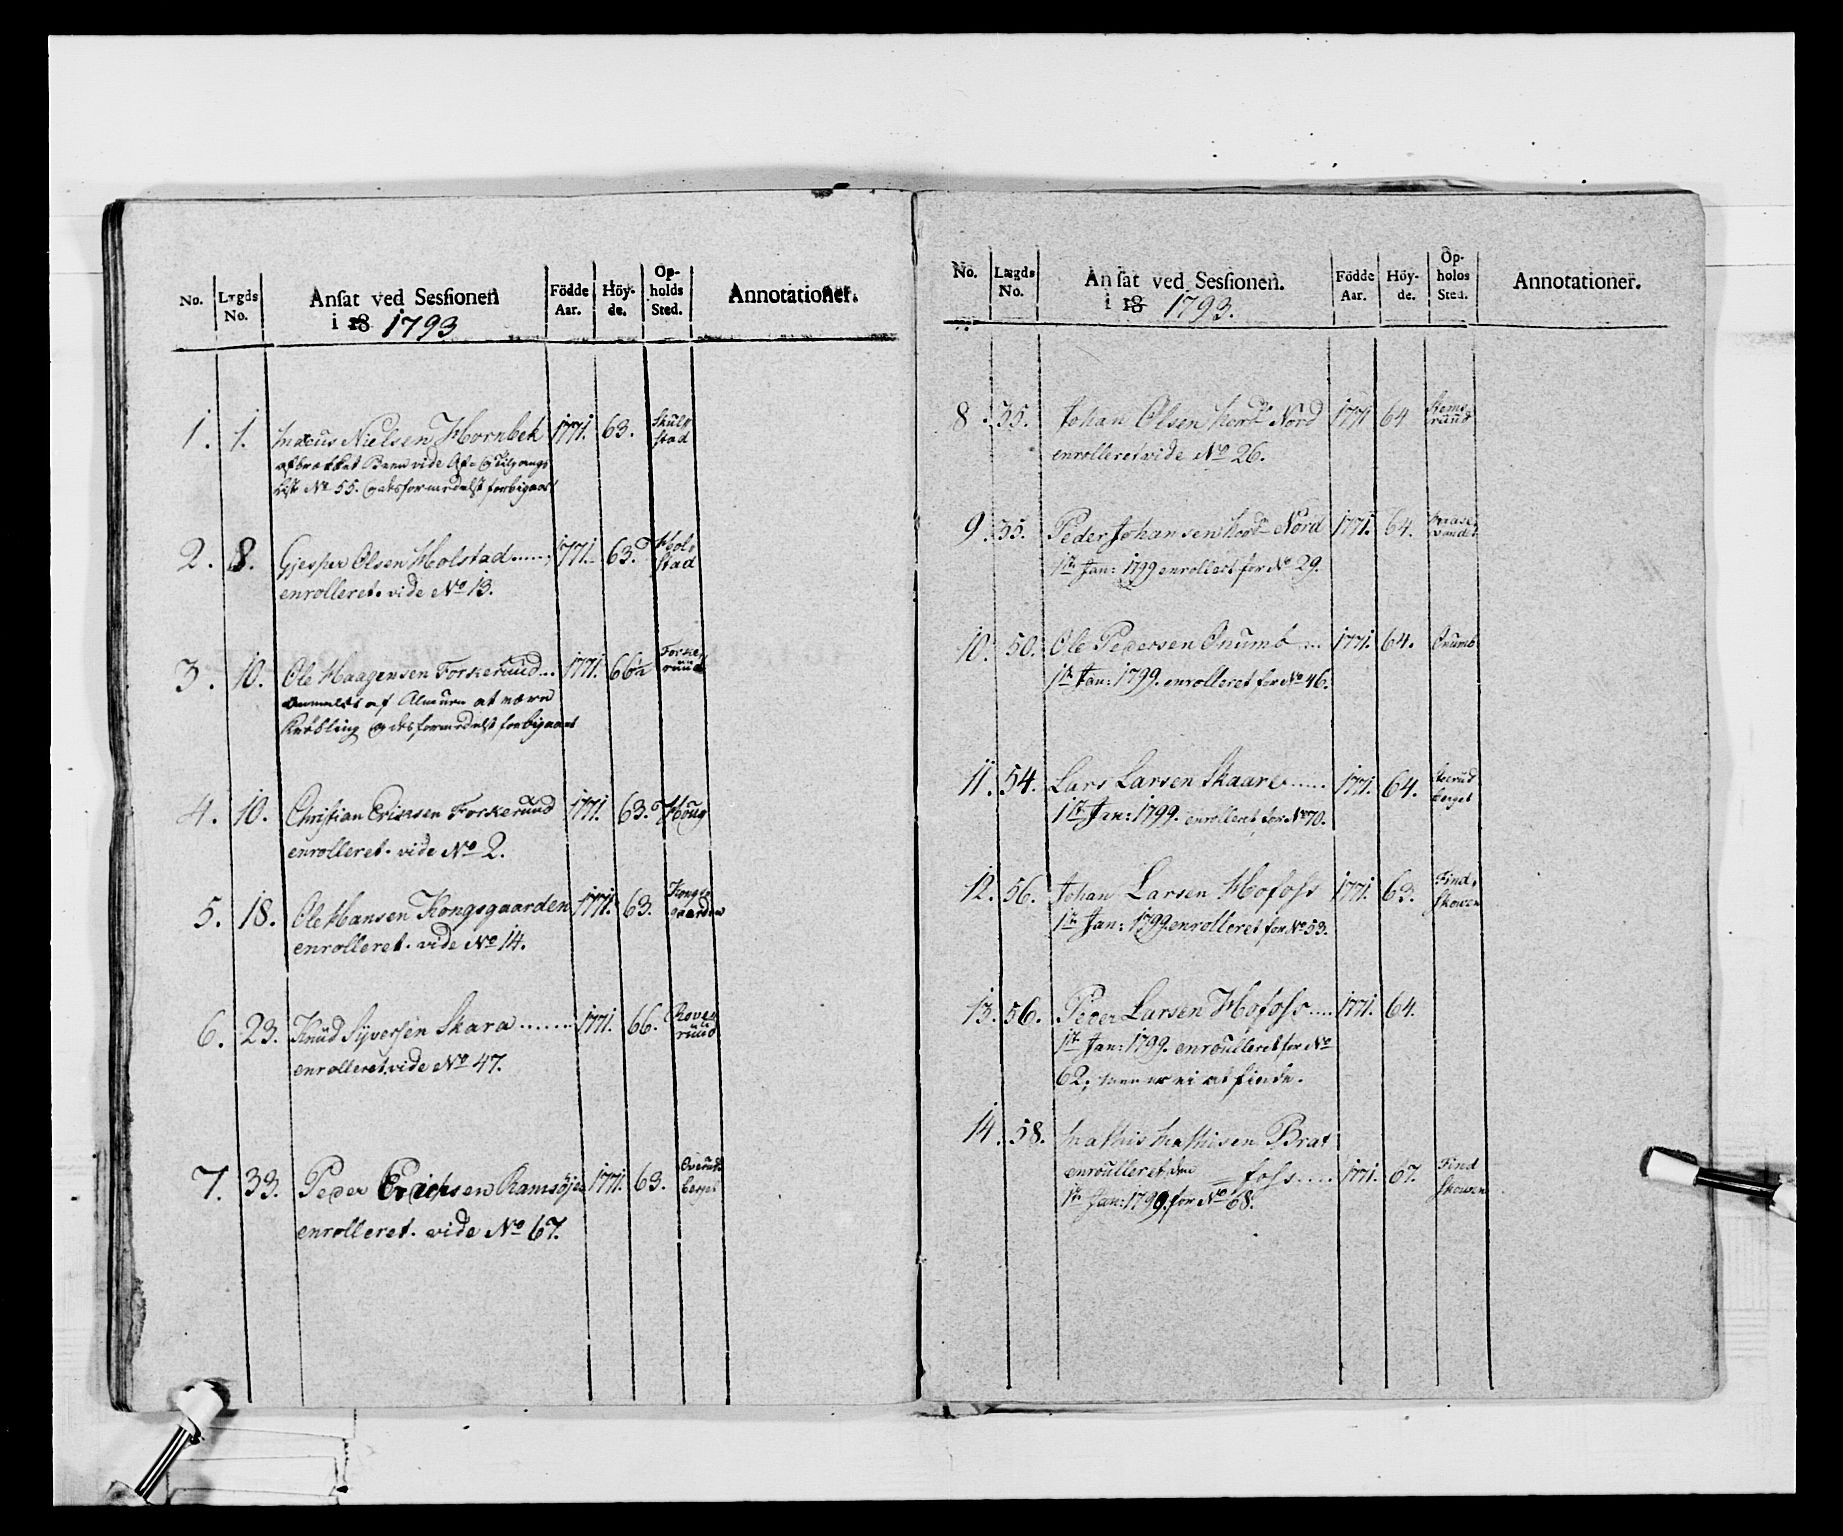 No. Lægds No. Ansat ved Sessionen i 18 1793 Födde Aar. Höyde. Opholds Sted. Annotationer.
1. 1. Nielsen Hornbek 1771. 63. Skulstad
vide Af- Tilgangs
List No 55. forbigaaet
2. 8. Gjesper Olsen Holstad 1771. 63. Holstad
enrolleret. vide No 13.
3. 10. Ole Haagensen Forkerüud 1771. 66 Forkerüud
Anmeldt af Almuen at være
Krøbling forbigaaet
4. 10. Christian Erichsen Forkerüud 1771. 63. Houg
enrolleret. vide No 2.
5. 18. Ole Hansen Kongsgaarden 1771. 63. Kongsgaarden
enrolleret. vide No 14.
6. 23. Knüd Syversen Skara 1771. 66.
enrolleret vide No 47.
7. 33. Peder Erichsen Ramsöje 1771. 63. Overudberget
enrolleret. vide No 67.
No. Lægds No. Ansat ved Sessionen. i 18 1793. Födde Aar. Höyde. Opholos Sted. Annotationer.
8. 35. Johan Olsen Nord 1771 64
enrolleret vide No 26.
9. 35. Peder Johansen Nord 1771. 64.
1te Jan: 1799 enrollert for No 29.
10. 50. Ole Pedersen Onumb 1771. 64. Onumb
1te Jan: 1799. enrolleret for No 46.
11. 54. Lars Larsen Skaare 1771. 64.
1te Jan: 1799. enrolleret for No 70.
12. 56. Johan Larsen Hofofs 1771. 63. Findskowen
1te Jan: 1799 enrolleret for No 53.
13. 56. Peder Larsen Hofofs 1771. 64.
1te Jan: 1799. enroulleret for No
62, men er ei at finde.
14. 58. Mathis Mathisen Brat
enroulleret den fofs 1771. 67. Findskowen
1te Jan: 1799. for No 68.